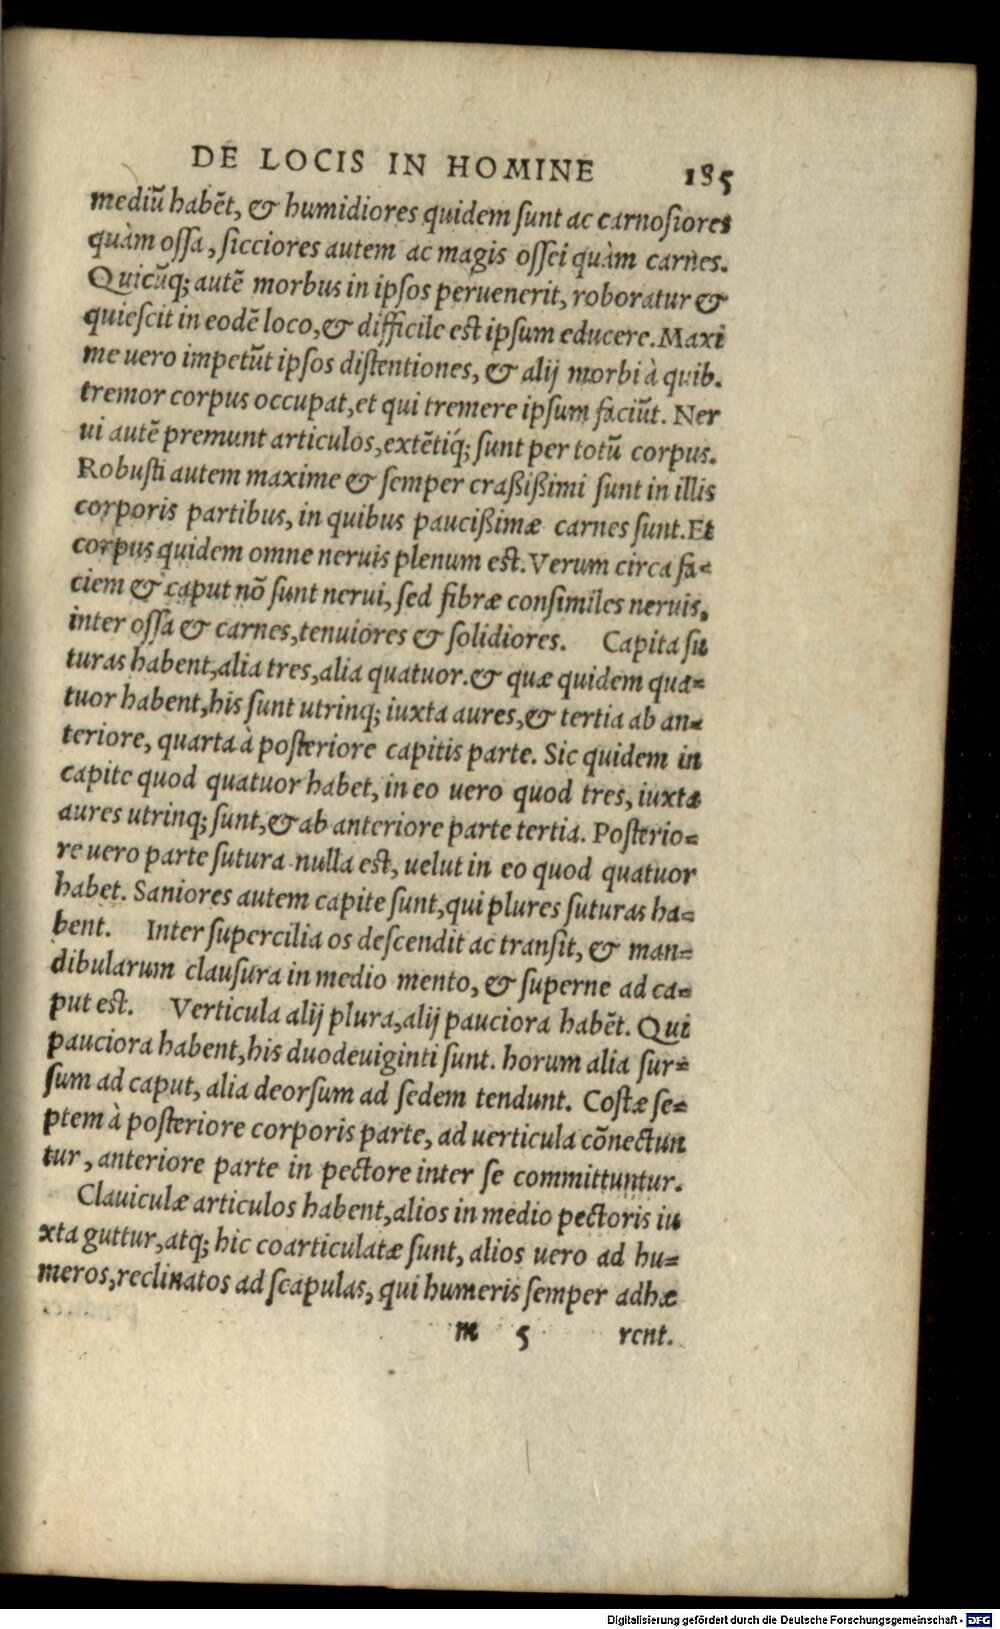 DE LOCIS IN HOMINE 185
mediū habēt, & humidiores quidem ſunt ac carnoſiores
quàm oſſa, ſicciores autem ac magis oſſei quàm carnes.
Quicūq; autē morbus in ipſos peruenerit, roboratur &
quieſcit in eodē loco, & difficile eſt ipſum educere. Maxi
me uero impetūt ipſos diſtentiones, & alij morbi à quib.
tremor corpus occupat, et qui tremere ipſum faciūt. Ner
ui autē premunt articulos, extētiq́; ſunt per totū corpus.
Robuſti autem maxime & ſemper craßißimi ſunt in illis
corporis partibus, in quibus paucißimæ carnes ſunt. Et
corpus quidem omne neruis plenum eſt. Verum circa fa=
ciem & caput nō ſunt nerui, ſed fibræ conſimiles neruis,
inter oſſa & carnes, tenuiores & ſolidiores. Capita ſu
turas habent, alia tres, alia quatuor. & quæ quidem qua=
tuor habent, his ſunt utrinq; iuxta aures, & tertia ab an=
teriore, quarta à poſteriore capitis parte. Sic quidem in
capite quod quatuor habet, in eo uero quod tres, iuxta
aures utrinq; ſunt, & ab anteriore parte tertia. Poſterio=
re uero parte ſutura nulla eſt, uelut in eo quod quatuor
habet. Saniores autem capite ſunt, qui plures ſuturas ha=
bent. Inter ſupercilia os deſcendit ac tranſit, & man=
dibularum clauſura in medio mento, & ſuperne ad ca=
put eſt. Verticula alij plura, alij pauciora habēt. Qui
pauciora habent, his duodeuiginti ſunt. horum alia ſur=
ſum ad caput, alia deorſum ad ſedem tendunt. Coſtæ ſe=
ptem à poſteriore corporis parte, ad uerticula cōnectun
tur, anteriore parte in pectore inter ſe committuntur.
Clauiculæ articulos habent, alios in medio pectoris iu
xta guttur, atq; hic coarticulatæ ſunt, alios uero ad hu=
meros, reclinatos ad ſcapulas, qui humeris ſemper adhæ
m 5 rent.
Digitalisierung gefördert durch die Deutsche Forschungsgemeinschaft - DFG